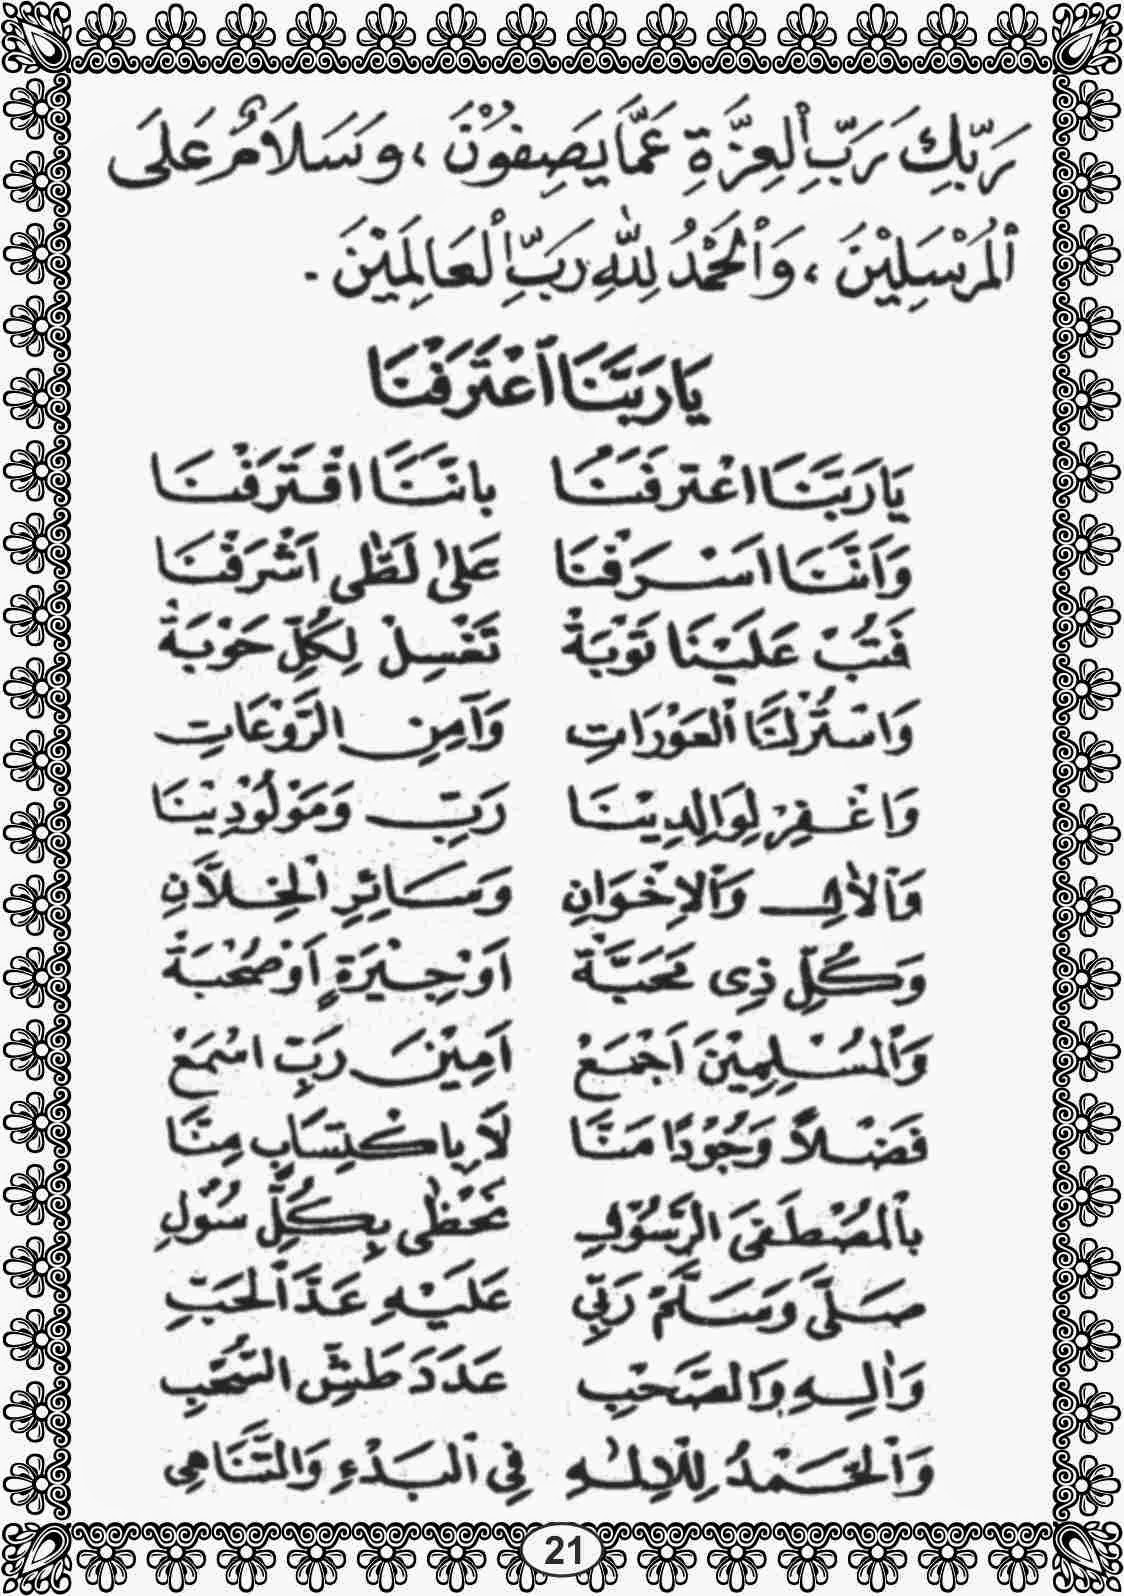 رَبِّكَ رَبِّ ٱلْعِزَّةِ عَمَّا يَصِفُوْنَ ، وَسَلَامٌ عَلَى
ٱلْمُرْسَلِيْنَ ، وَٱلْحَمْدُ لِلّٰهِ رَبِّ ٱلْعَالَمِيْنَ .
يَا رَبَّنَا ٱعْتَرَفْنَا
يَا رَبَّنَا اعْتَرَفْنَا بِانَّنَا اقْتَرَفْنَا
وَاَنَّنَا اَسْرَفْنَا عَلىٰ لَظٰى اَشْرَفْنَا
فَتُبْ عَلَيْنَا تَوْبَةْ تَغْسِلْ لِكُلِّ حَوْبَةْ
وَاسْتُرْ لَنَا ٱلْعَوْرَاتِ وَآمِنِ الرَّوْعَاتِ
وَاغْفِرْ لِوَالِدِيْنَا رَبِّ وَمَوْلُوْدِيْنَا
وَٱلْاٰلِ وَٱلْاِخْوَانِ وَسَائِرِ ٱلْخِلَّانِ
وَكُلِّ ذِى مَحَبَّةْ اَوْ جِيْرَةٍ اَوْ صُحْبَةْ
وَٱلْمُسْلِمِيْنَ اَجْمَعْ اَمِيْنَ رَبِّ اسْمَعْ
فَضْلاً وَجُوْدًا مَنَّا لَا بِاكْتِسَابٍ مِنَّا
بِٱلْمُصْطَفَى الرَّسُوْلِ نَحْظٰى بِكُلِّ سُوْلِ
صَلَّى وَسَلَّمْ رَبِّي عَلَيْهِ عَدَّ ٱلْحَبِّ
وَاٰلِهِ وَالصَّحْبِ عَدَدَ طَشِّ السُّحْبِ
وَٱلْحَمْدُ لِلْاِلٰهِ فِي ٱلْبَدْءِ وَالتَّنَاهِي
21